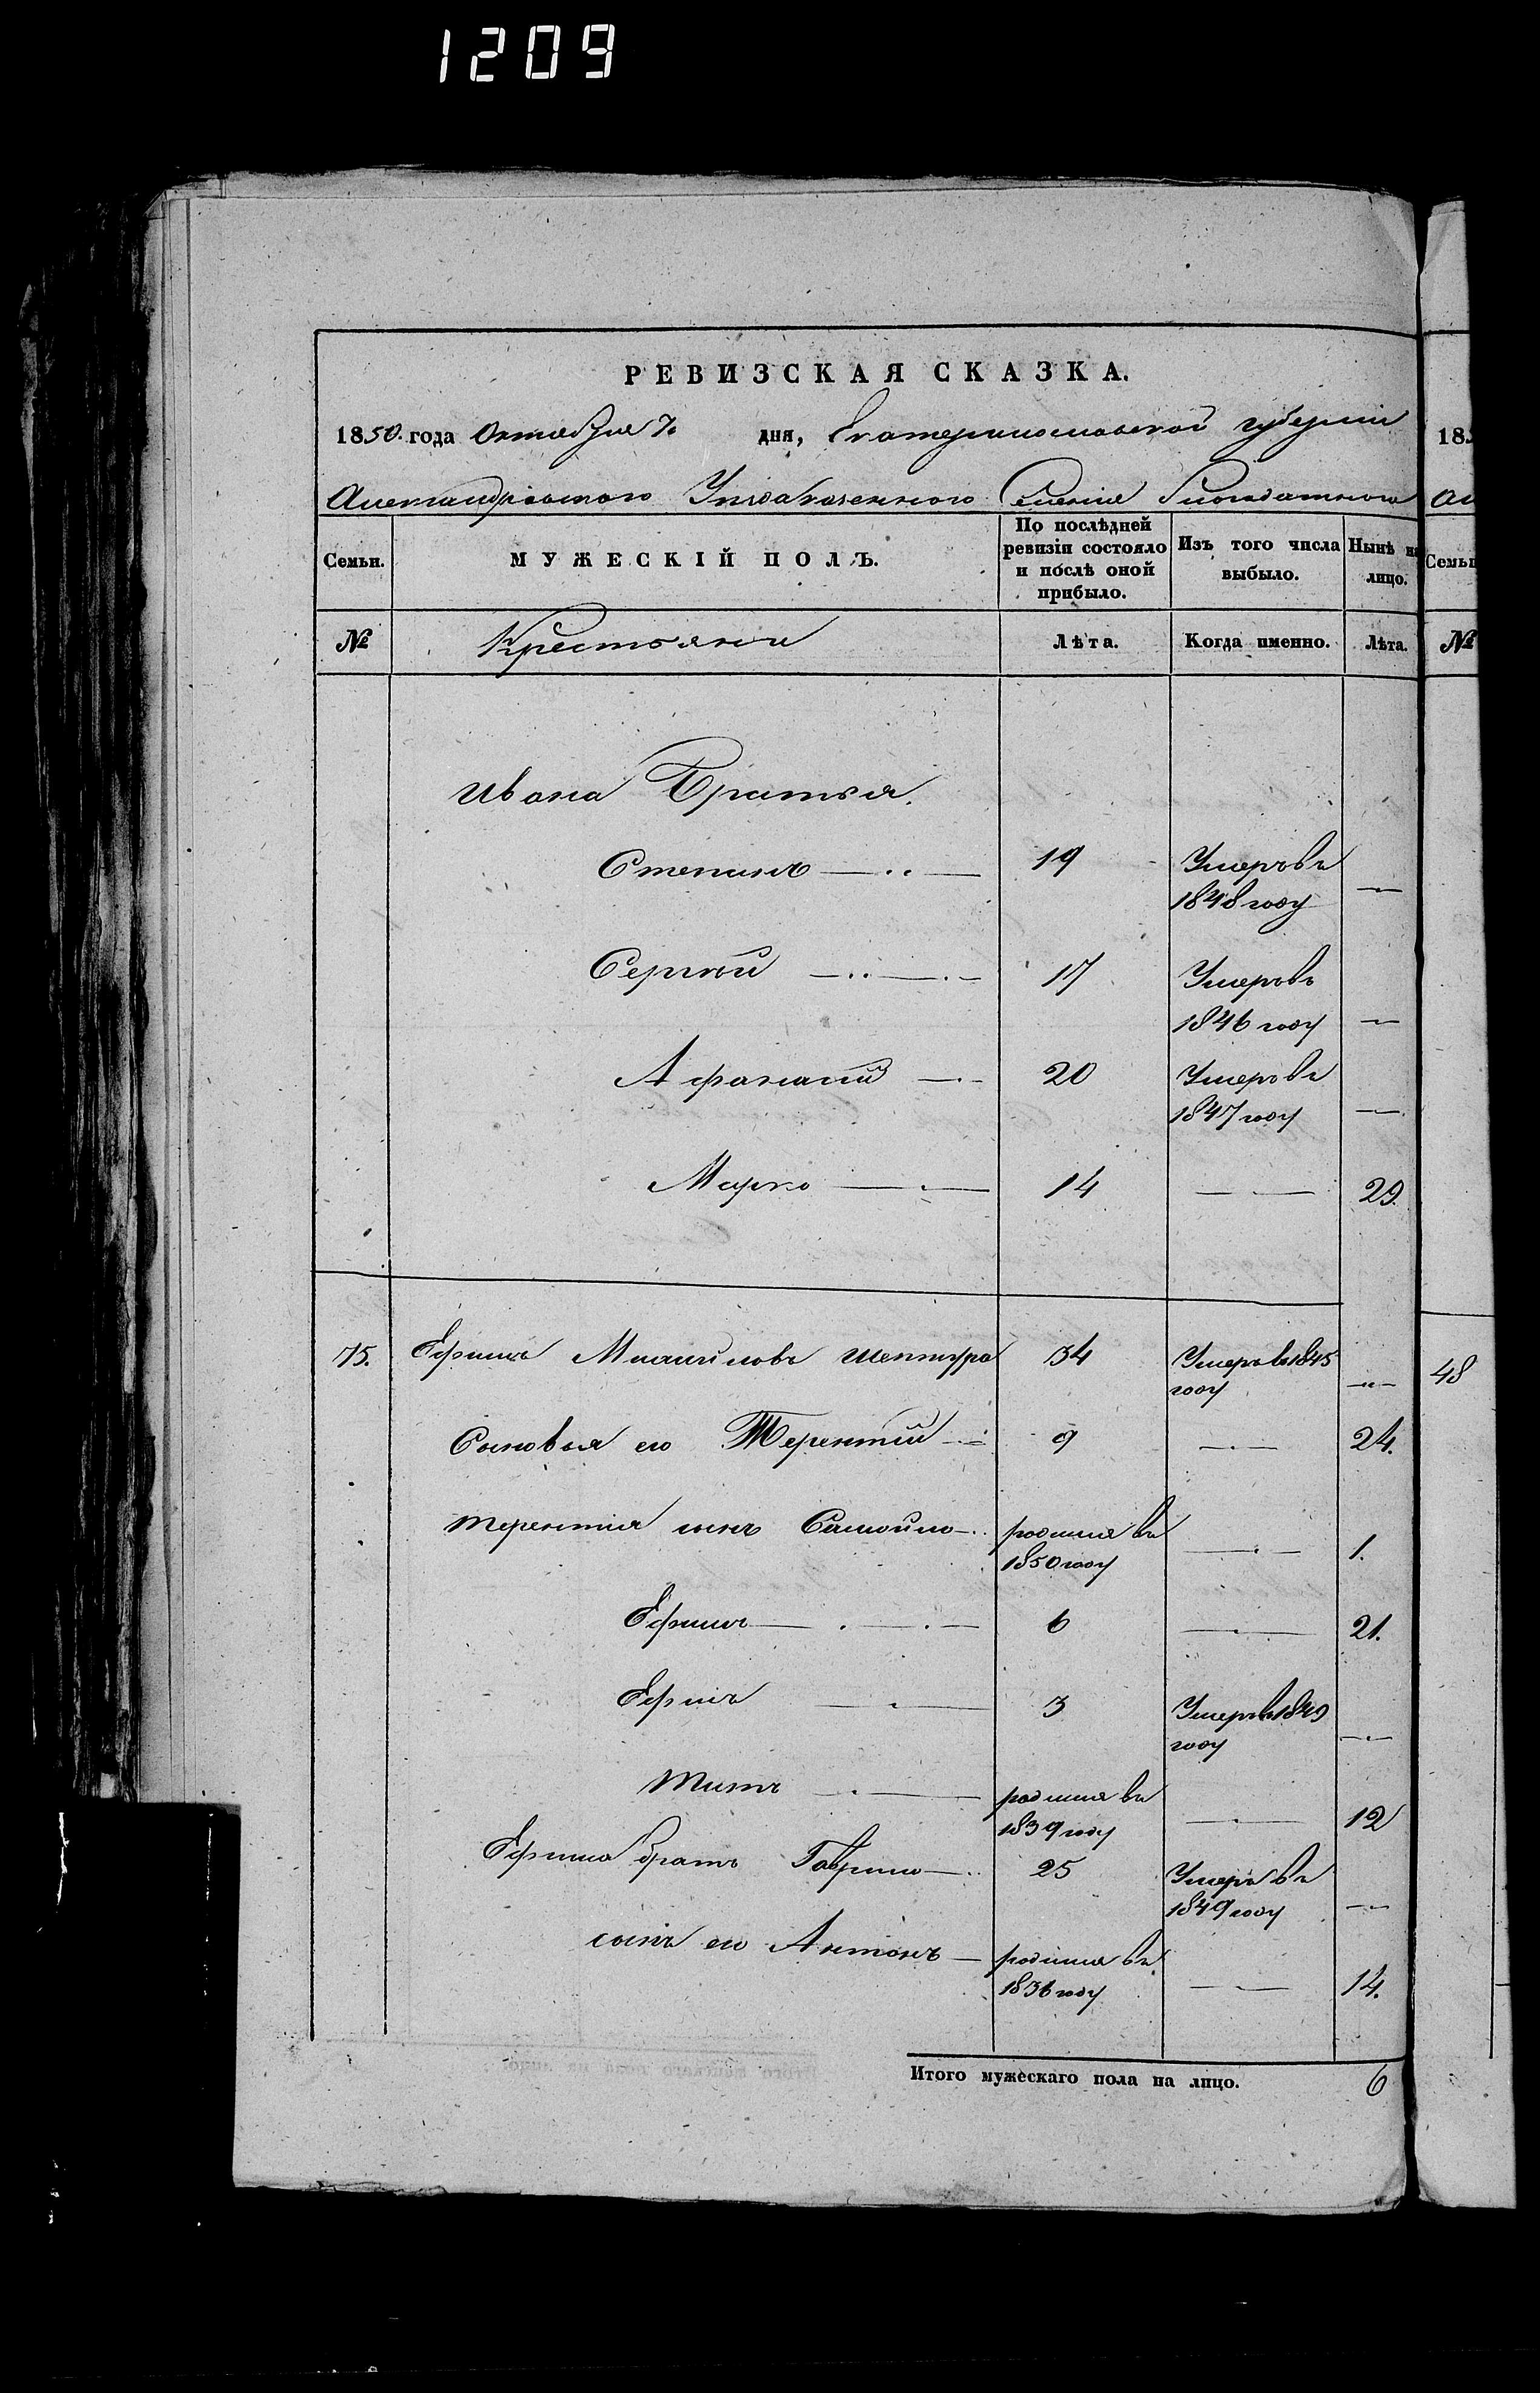 1209
РЕВИЗСКАЯ СКАЗКА.
1850. года Октября 7. дня, Екатеринославской губерніи
Александровского Уезда казенного Селенія
Семьи. МУЖЕСКІЙ ПОЛЪ. По послѣдней ревизіи состояло и послѣ оной прибыло. Изъ того числа выбыло. Нынѣ на лицо.
№ Крестьяни Лѣта. Когда именно. Лѣта.
Ивана Братья.
Степанъ 19 Умеръ въ
1848 году
Сергѣй 17 Умеръ въ
1846 году
Афанасий 20 Умеръ въ
1847 году
Марко 14 29.
75. Ефимъ Михайловъ Шептура 34 Умеръ в 1845
году
Сыновья его Терентий 9 24.
Терентия сынъ Самойло родился въ 1.
1850 году
Ефимъ 6 21.
Ефимъ 3 Умеръ в 1849
году
Титъ родился въ 12
1839 году
Ефима братъ Гаврило 25 Умеръ въ
1849 году
сынъ его Антонъ родился въ 14.
1836 году
Итого мужескаго пола на лицо. 6
18
Семьи
№
48